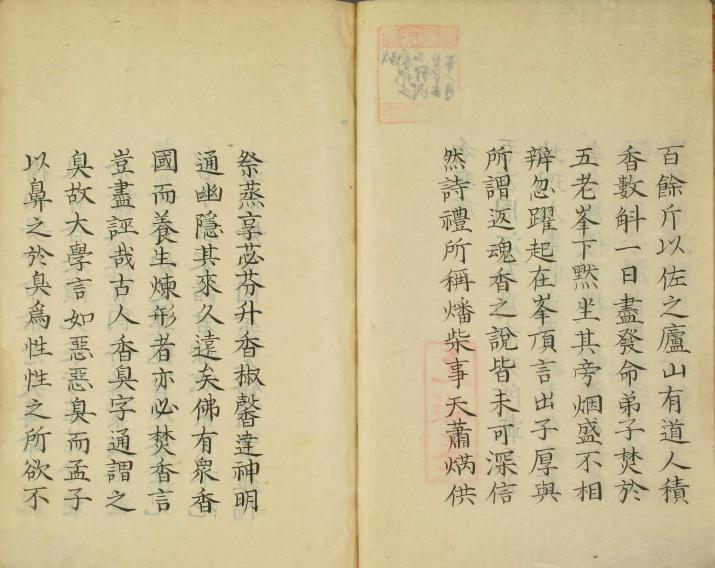 百餘斤以佐之廬山有道人積
香數斛一日盡發命弟子焚於
五老峯下黙坐其旁烟盛不相
辨忽躍起在峯頂言出子厚與
所謂返魂香之說皆未可深信
然詩禮所稱燔柴事天蕭焫供
祭蒸享苾芬升香椒馨達神明
通幽隱其來久遠矣佛有衆香
國而養生煉形者亦必焚香言
豈盡誣哉古人香臭字通謂之
臭故大學言如惡惡臭而孟子
以鼻之於臭爲性性之所欲不